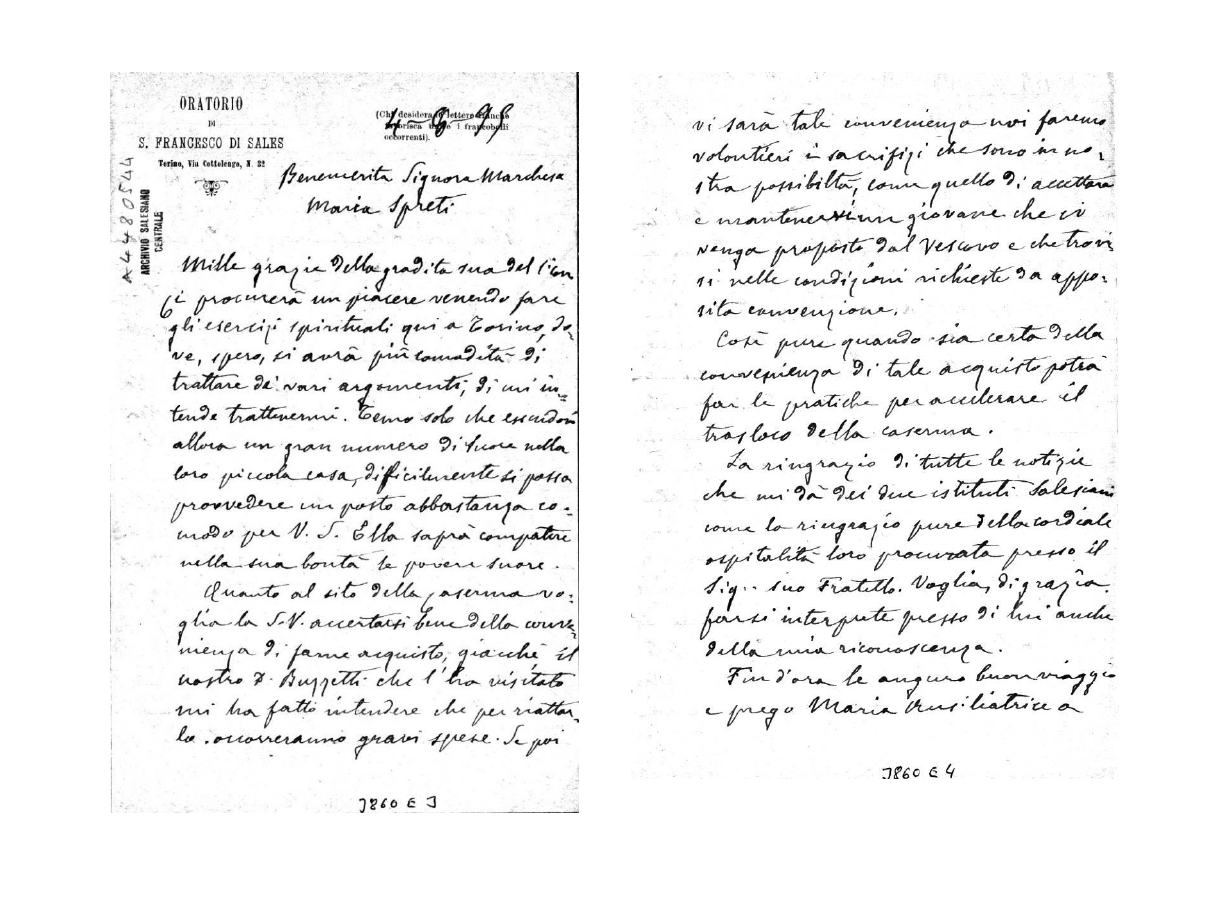 ORATORIO
DI
S. FRANCESCO DI SALES
Torino, Via Cottolengo, N. 32
(Chi desidera le lettere franche
unisca i francobolli
occorrenti).
4-8-95
A4480544
ARCHIVIO SALESIANO
CENTRALE
Benemerita Signora Marchesa
Maria Spreti
Mille grazie della gradita sua del
Ci procurerà un piacere venendo fare
gli esercizi spirituali qui a Torino, do-
ve, spero, si avrà più comodità di
trattare de' vari argomenti, di cui in-
tende trattenermi. Temo solo che essendovi
allora un gran numero di suore nella
loro piccola casa, difficilmente si possa
provvedere un posto abbastanza co-
modo per V. S. Ella saprà compatire
nella sua bontà le povere suore.
Quanto al sito della caserma vo-
glia la S.V. accertarsi bene della conve-
nienza di farne acquisto, giacchè il
nostro D. Buzzetti che l'ha visitato
mi ha fatto intendere che per riattar-
la occorreranno gravi spese. Se poi
J860 E 3
vi sarà tale convenienza noi faremo
volontieri i sacrifizi che sono in no-
stra possibiltà, come quello di accettare
e mantenervi un giovane che ci
venga proposto dal Vescovo e che trovi-
si nelle condizioni richieste da appo-
sita convenzione.
Così pure quando sia certa della
convenienza di tale acquisto potrà
far le pratiche per accelerare il
trasloco della caserma.
La ringrazio di tutte le notizie
che mi dà dei due istituti Salesiani
come la ringrazio pure della cordiale
ospitalità loro procurata presso il
Sig.. suo Fratello. Voglia, di grazia
farsi interprete presso di lui anche
della mia riconoscenza.
Fin d'ora le auguro buon viaggio
e prego Maria Ausiliatrice a
J860 E 4